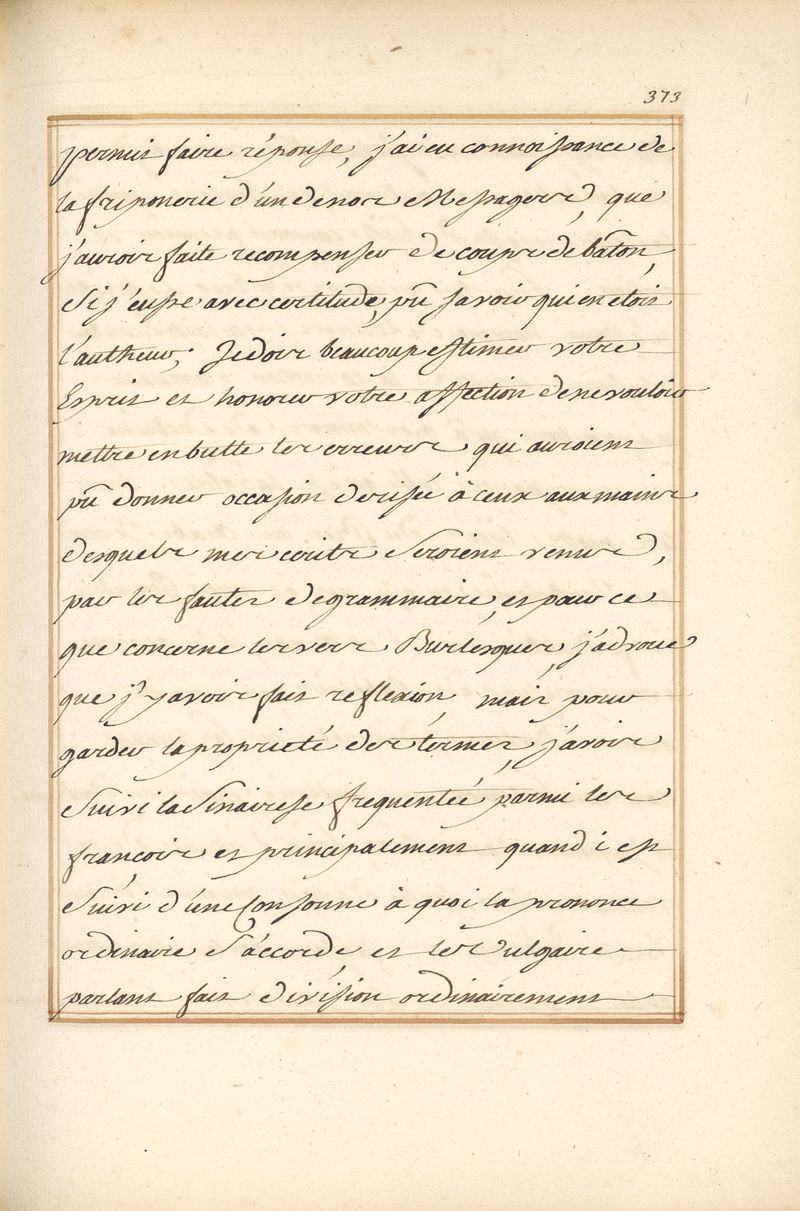 373
permis faire réponse, j'ai eu connoissance de
la friponerie d'un de nos Messagers, que
j'aurois faite recompenser de coups de bâton,
si j'eusse avec certitude, pû savoir qui en etois
l'autheur; Je dois beaucoup estimer votre
Esprit et honorer votre affection de ne vouloir
mettre en butte les erreurs qui auroient
pû donner occasion de risée à ceux aux mains
desquels mes ecrits seroient venus,
par les fautes de grammaire, et pour ce
que concerne les vers Burlesques, j'advoue
que j'y avois fait reflexion, mais pour
garder la proprieté des termes, j'avois
suivi la Sinairese frequentée parmi les
françois et principalement quand i est
suivi d'une Consonne à quoi la prononce
ordinaire s'accorde et le Vulgaire
parlant fait division ordinairement